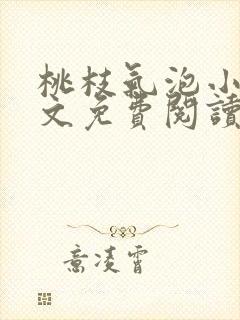 桃枝氣泡小
文免費閱讀
意凌霄